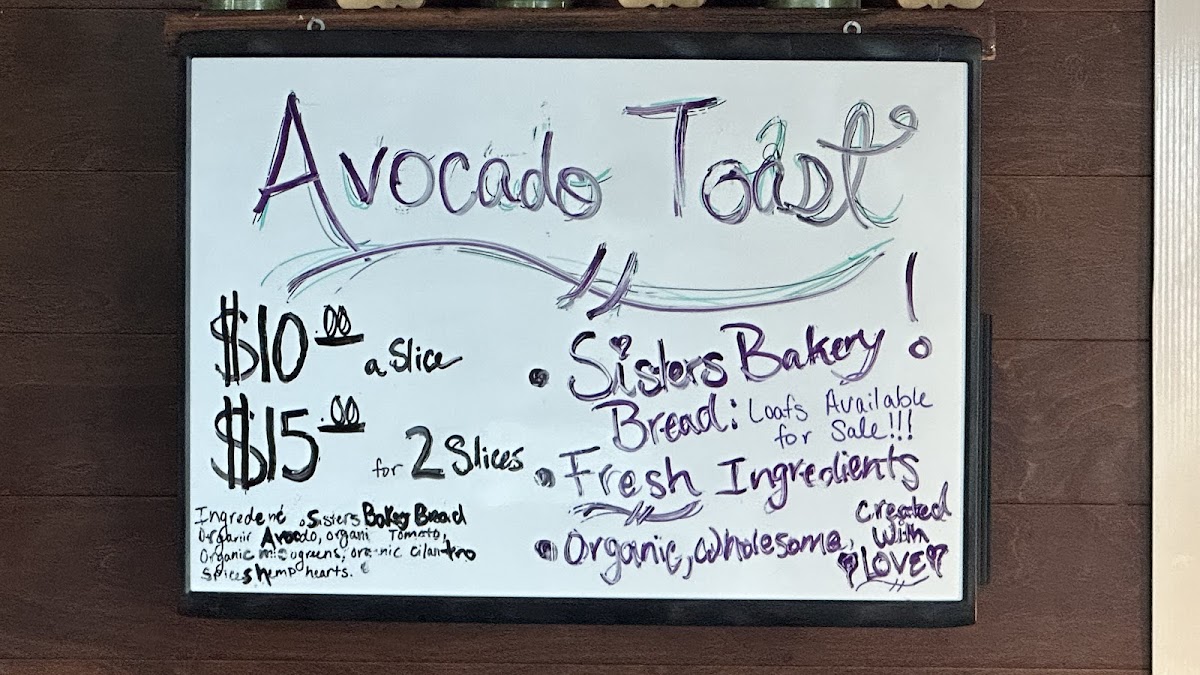 Avocado Toast
$10.00 a Slice
$15.00 for 2 Slices
Ingredent Sisters Bakery Bread
Organic Avocado, organi Tomato,
Organic microgreens, organic cilantro
Spices hemp hearts.
• Sisters Bakery!
Bread: Loafs Available
for Sale!!!
• Fresh Ingredients
• Organic, Wholesome,
created
with
LOVE